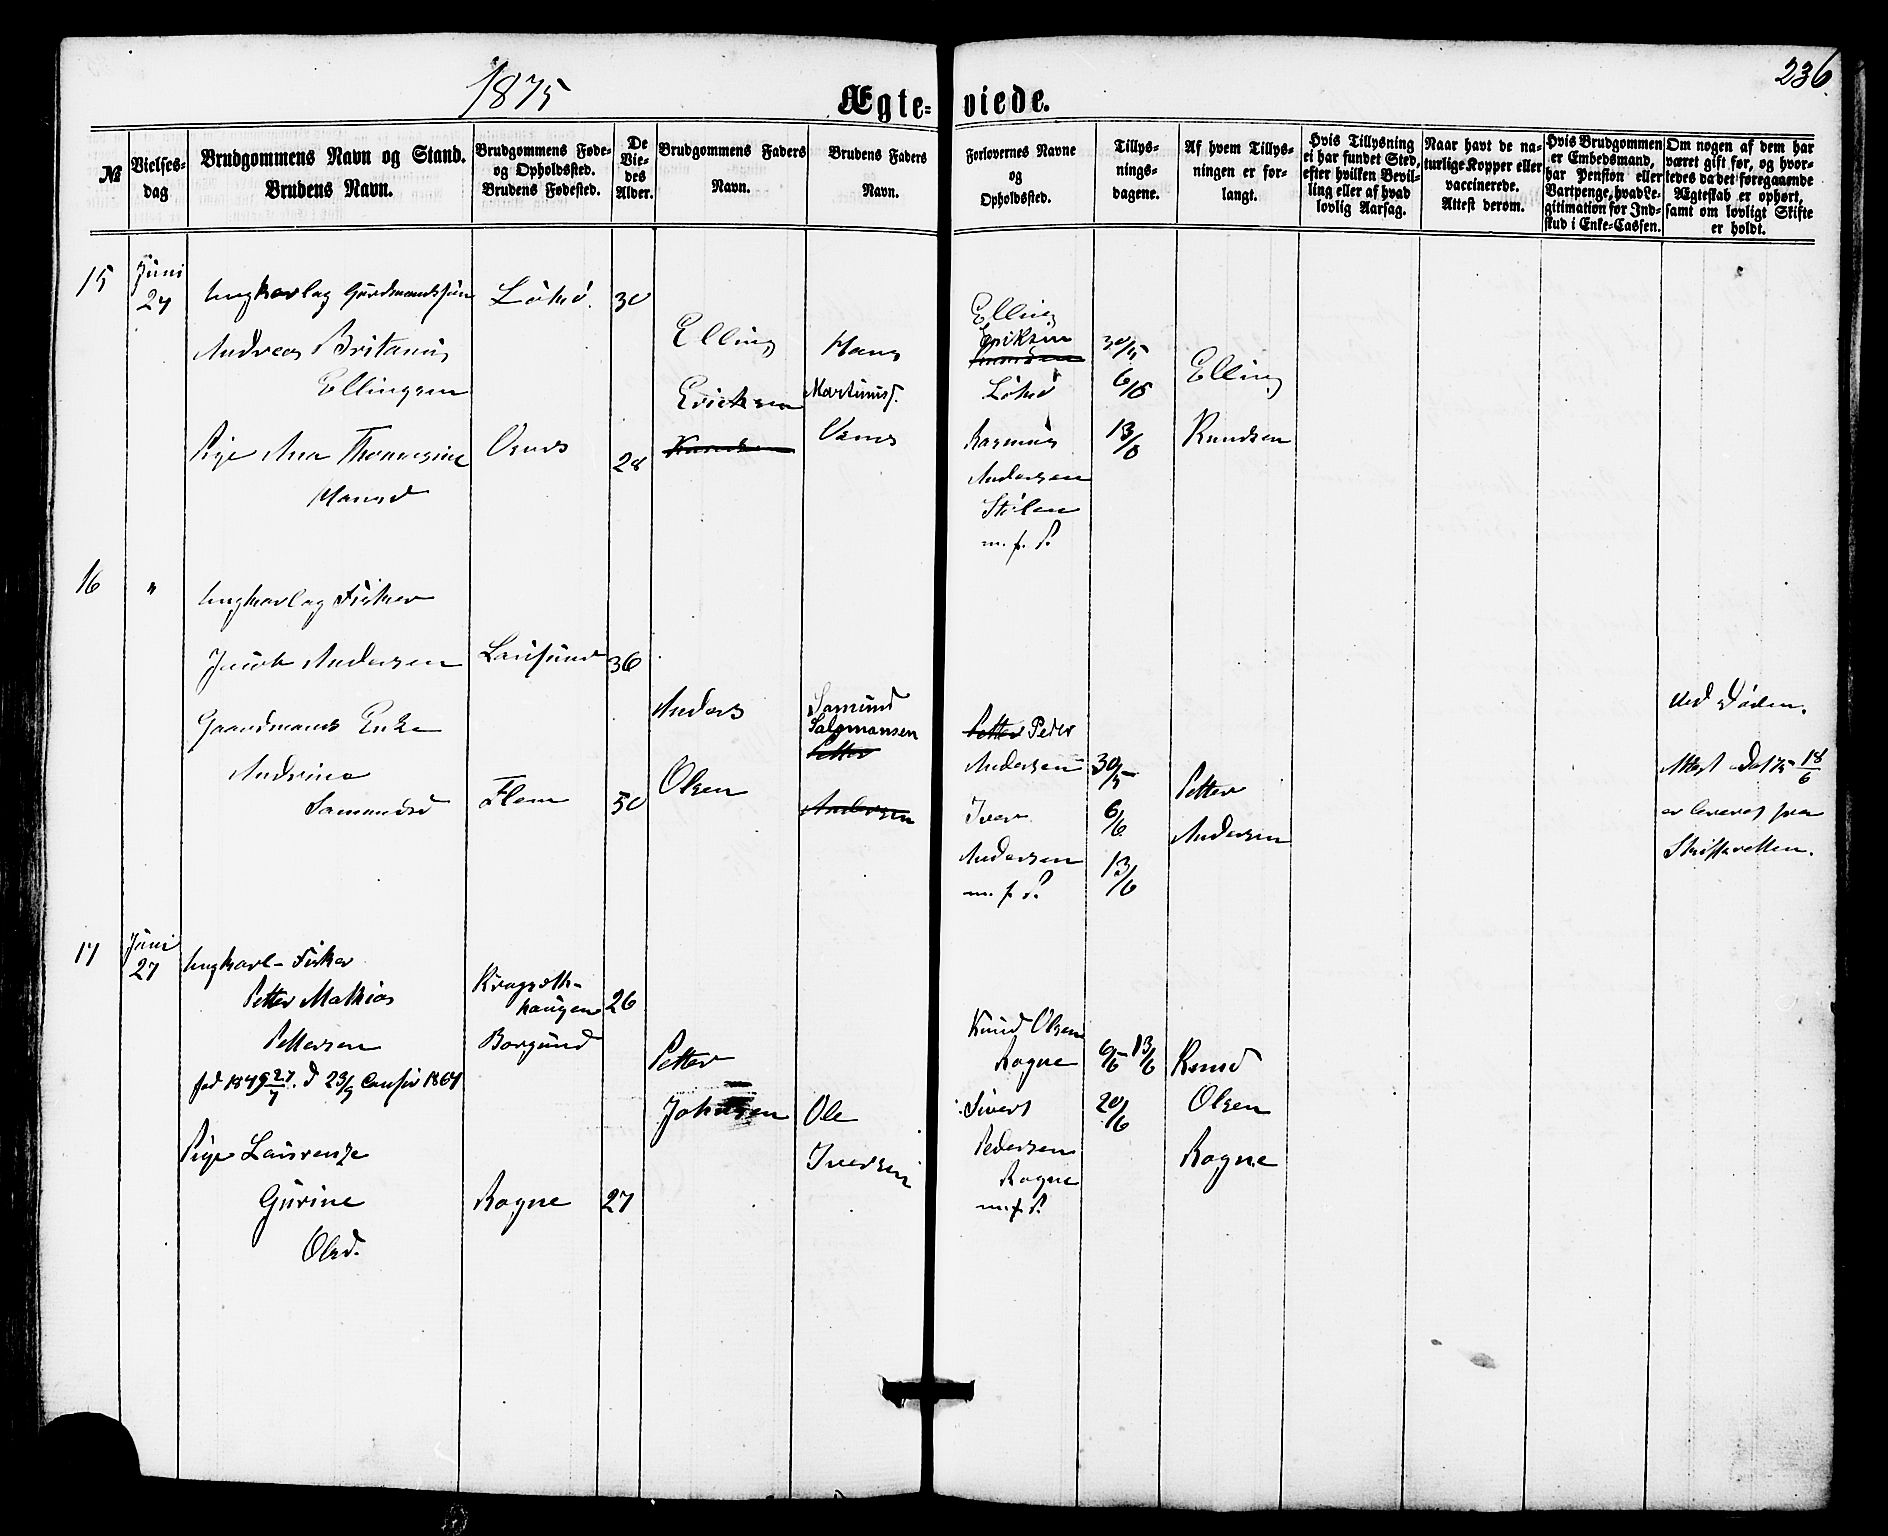 1875
236
Ægte-viede.
№
Vielses-
dag
Brudgommens Navn og Stand.
Brudens Navn.
Brudgommens Føde-
og Opholdssted.
Brudens Fødested.
De
Vie-
des
Alder.
Brudgommens Faders
Navn.
Brudens Faders
Navn.
Forlovernes Navne
og
Opholdssted.
Tillys-
nings-
dagene.
Af hvem Tillys-
ningen er for-
langt.
Hvis Tillysning
ei har fundet Sted,
efter hvilken Bevil-
ling eller af hvad
lovlig Aarsag.
Naar havt de na-
turlige Kopper eller
vaccinerede.
Attest derom.
Hvis Brudgommen
er Embedsmand,
har Pension eller
Vartpenge, hvad Le-
gitimation for Ind-
skud i Enke-Cassen.
Om nogen af dem har
været gift før, og hvor-
ledes da det foregaaende
Ægteskab er ophørt,
samt om lovligt Skifte
er holdt.
15
Juni
24
Ungkarl og Gaardmandssøn
Andreas Britanius
Ellingsen
Pige Ana Thomasine
Hansd
30
28
Elling
Ericksen
Knudsen
Hans
Martinus
Elling
Eriksen
Rasmus
Andersen
Stølen
m. f. P.
30/5
6/6
13/6
Elling
Knudsen
16
"
Ungkarl og Fisker
Jacob Andersen
Gaardmands Enke
Andrine
Samundsd
Flem
36
50
Anders
Olsen
Samund
Salamonsen
Petter
Andersen
Petter Peder
Andersen
Iver
Andersen
m. f. P.
30/5
6/6
13/6
Petter
Andersen
Ved Døden.
Attest dat 18/6
er leveret fra
Skifteretten.
17
Juni
27
Ungkarl - Fisker
Petter Mathias
Pettersen
fød 1849 27/7 d 23/9 Confir 1864
Pige Laurenze
Gurine
Olsd.
Kragseth-
haugen
Borgund
Rogne
26
27
Petter
Johnsen
Ole
Iversen
Knud Olsen
Rogne
Sivert
Pedersen
Rogne
m. f. P.
6/6 13/6
20/6
Knud
Olsen
Rogne